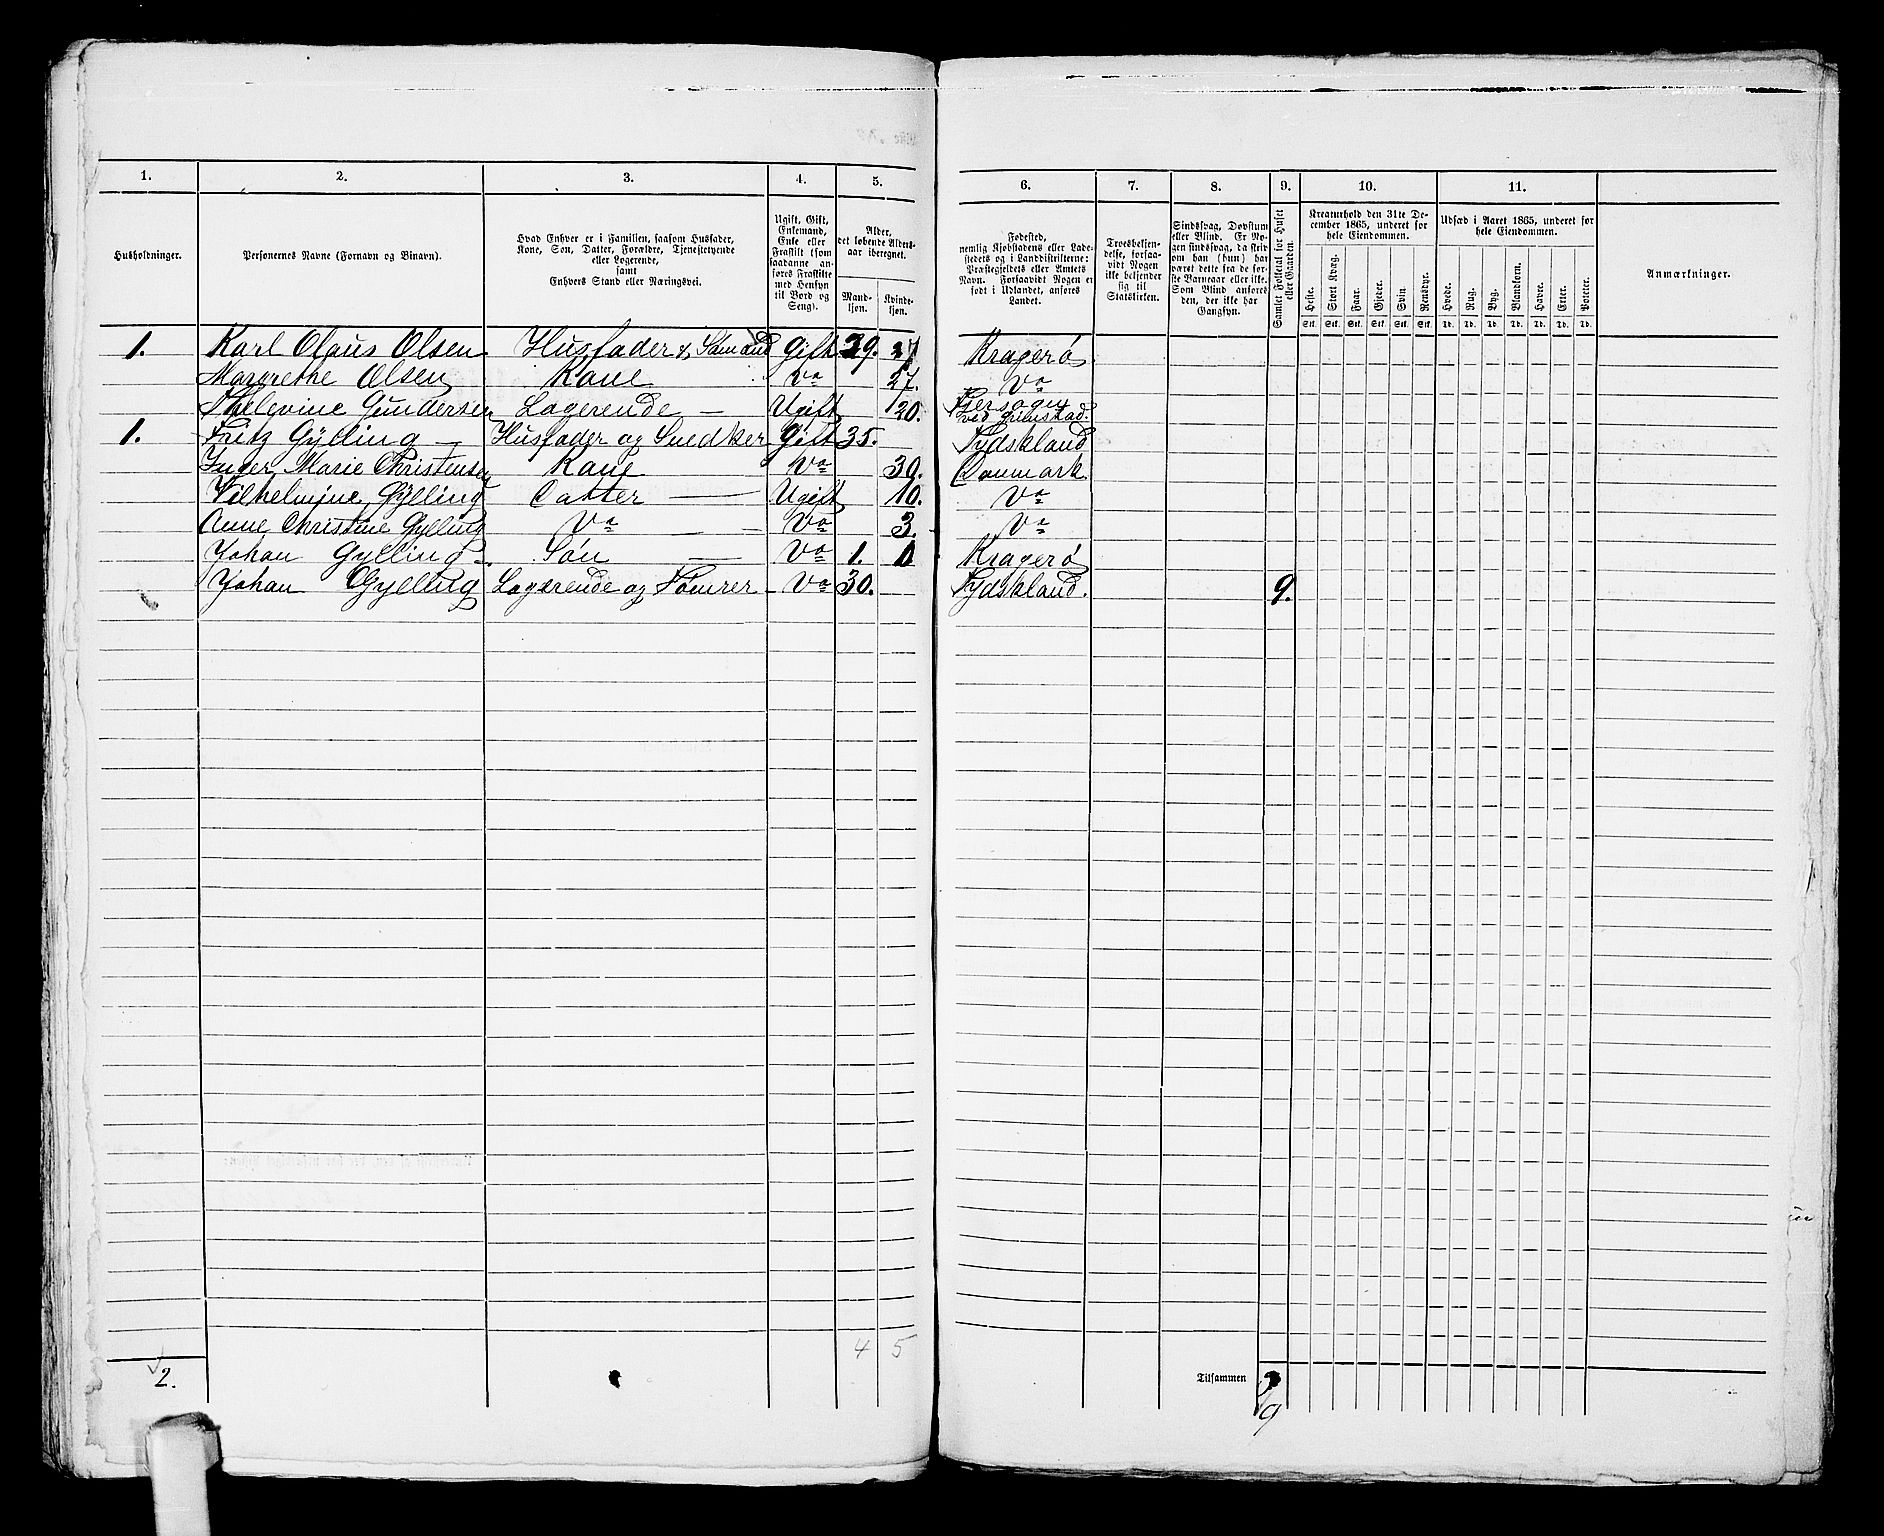 1. 2. 3. 4. 5. 6. 7. 8. 9. 10. 11.
Husholdninger.
Personernes Navne (Fornavn og Binavn).
Hvad Enhver er i Familien, saasom Husfader,
Kone, Søn, Datter, Forældre, Tjenestetyende
eller Logerende,
samt
Enhvers Stand eller Næringsvei.
Ugift, Gift,
Enkemand,
Enke eller
Fraskilt (som
saadanne an-
føres Fraskilte
med Hensyn
til Bord og
Seng).
Alder,
det løbende Alders-
aar iberegnet.
Mand-
kjøn.
Kvinde-
kjøn.
Fødested,
nemlig Kjøbstadens eller Lade-
stedets og i Landdistrikterne:
Præstegjeldets eller Amtets
Navn. Forsaavidt Nogen er
født i Udlandet, anføres
Landet.
Troesbekjen-
delse, forsaa-
vidt Nogen
ikke bekjender
sig til
Statskirken.
Sindssvag, Døvstum
eller Blind. Er No-
gen sindssvag, da skriv
om han (hun) har
været dette fra de før-
ste Barneaar eller ikke.
Som Blind anføres
den, der ikke har
Gangsyn.
Samlet Folketal for Huset
eller Gaarden.
Kreaturhold den 31te De-
cember 1865, underet for
hele Eiendommen.
Heste. Stort Kvæg. Faar. Gjeder. Svin. Rensdyr.
Stk. Stk. Stk. Stk. Stk. Stk.
Udsæd i Aaret 1865, underet for
hele Eiendommen.
Hvede. Rug. Byg. Blandkorn. Havre. Erter. Poteter.
Td. Td. Td. Td. Td. Td. Td.
Anmærkninger.
1. Karl Olaus Olsen Husfader & Sømand Gift 39. Kragerø
Margrethe Olsen Kone Do 27. Do
Thelevine Gundersen Logerende — Ugift 20. ved Grimstad.
1. Fritz Gÿlling — Husfader og Snedker Gift 35. Tydskland
Inger Marie Christensen Kone Do 30. Danmark
Vilhelmine Gÿlling Datter — Ugift 10. Do
Anne Christine Gÿlling Do — Do 3. Do
Johan Gylling — Søn — Do 1. Kragerø
Johan Gylling Logerende og Tømrer — Do 30. Tydskland. 9.
4 5
2.
Tilsammen
9